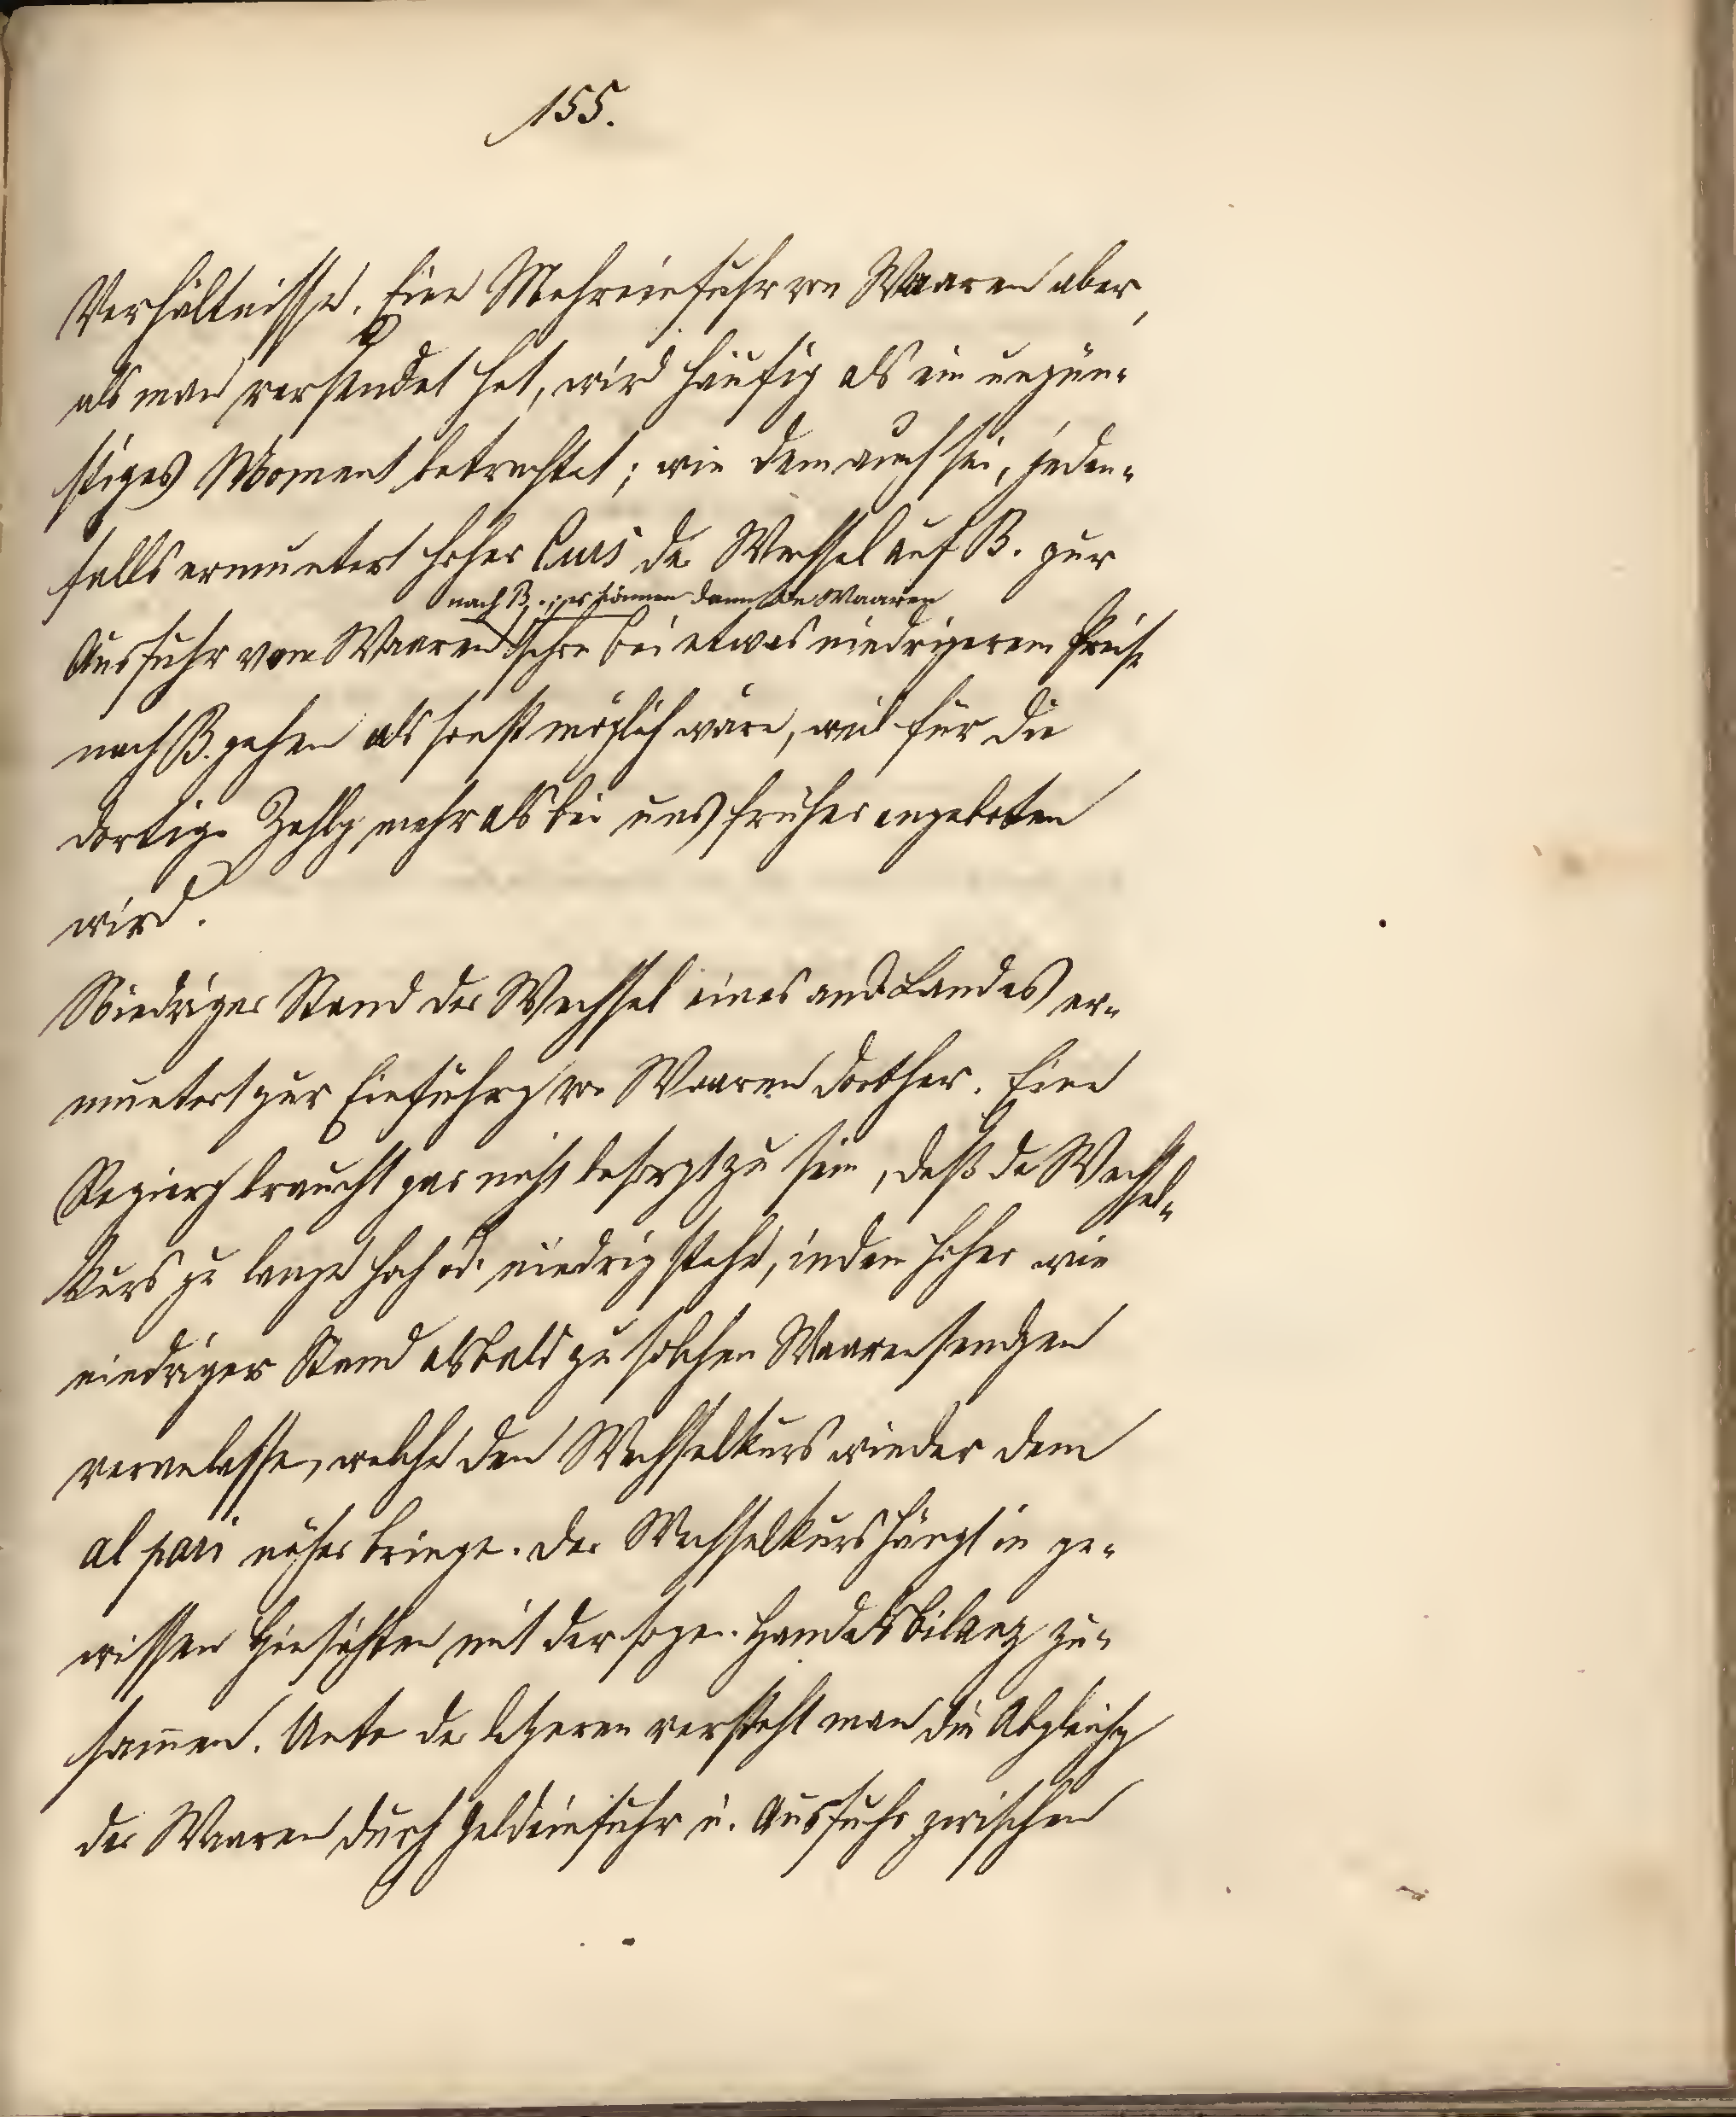 155.
Verhältnisse. Eine Mehreinfuhr von Waaren aber,
als man versendet hat, wird häufig als ein ungün-
stiges Moment betrachtet; wie dem auch sei, jeden-
falls ermuntert hoher Curs der Wechsel auf B. zur
nach B.; es können dann die Waaren
Ausfuhr von Waaren schon bei etwas niedrigerem Preise
nach B. gehen als sonst möglich wäre, weil für die
dortige Zahlg mehr als bei uns früher angeboten
wird.
Niedriger Stand der Wechsel eines and. Landes er-
muntert zur Einführg von Waaren dorther. Eine
Regierg braucht gar nicht besorgt zu sein, daß der Wechsel-
kurs zu lange hoch od. niedrig stehe, indem hoher wie
niedriger Stand alsbald zu solchen Waarensendgen
veranlasse, welche den Wechselkurs wieder dem
al pari näher bringe. Der Wechselkurs hängt in ge-
wissen Hinsichten mit der sogen. Handelsbilanz zu-
sam̄en. Unter der letzteren versteht man die Abgleichg
der Waaren durch Geldeinfuhr u. Ausfuhr zwischen